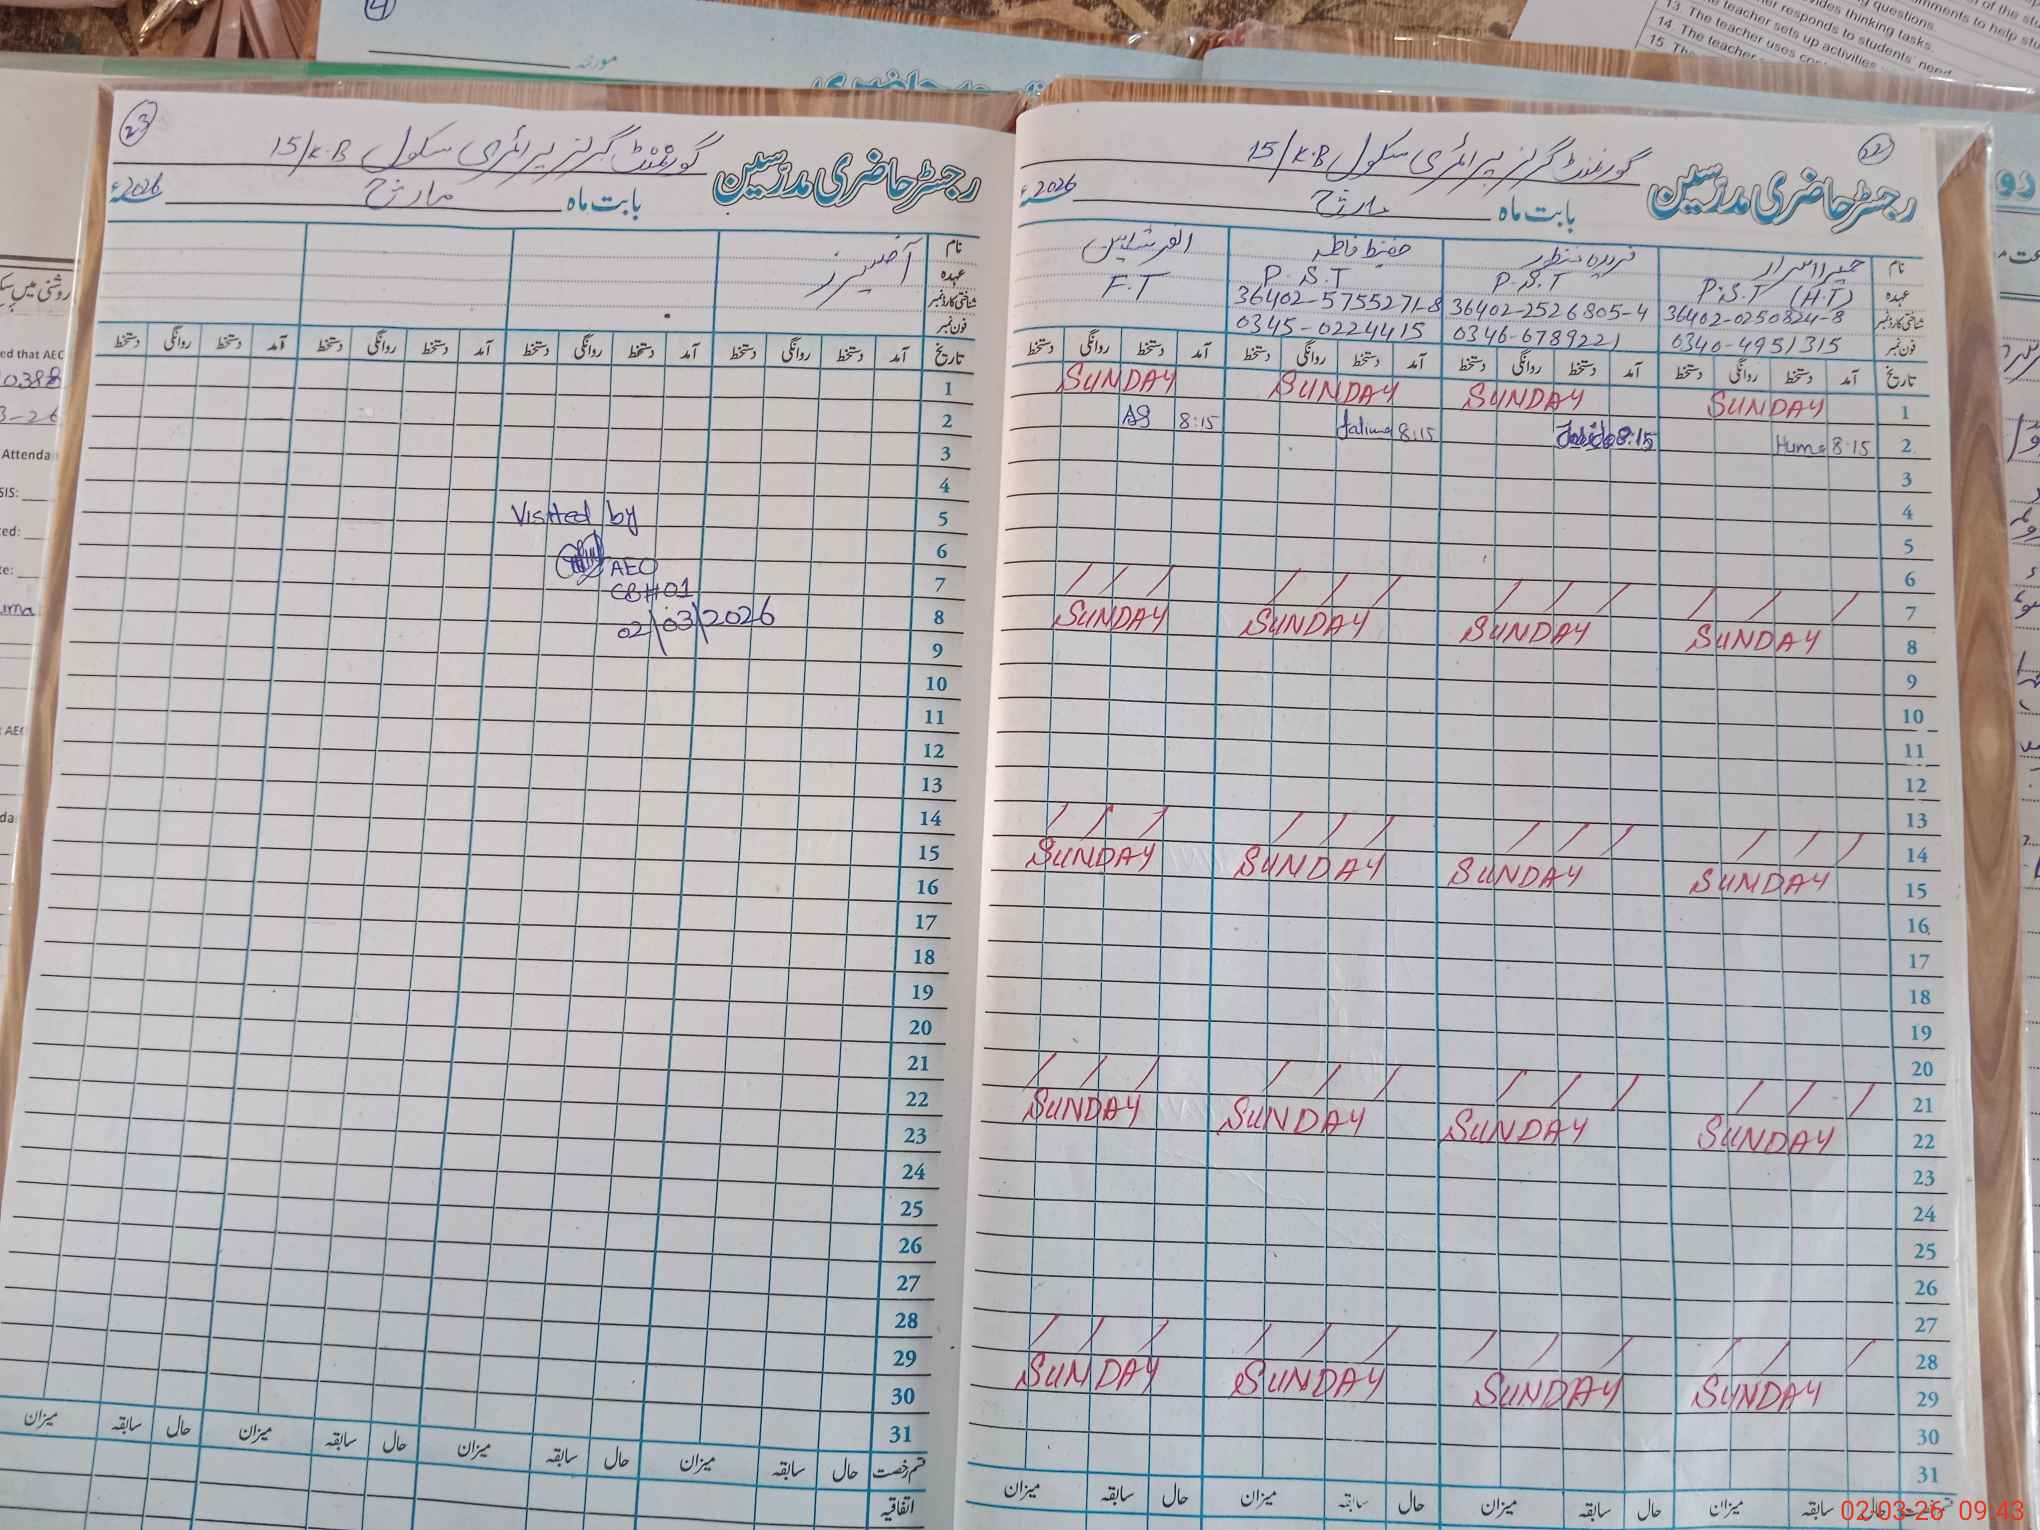 22
گورنمنٹ گرلز پرائمری سکول 15/K.B
رجسٹر حاضری مدرسین
بابت ماہ مارچ 2026ء
نام
حمیرا اسرار
حفیظ فاطمہ
عہدہ
P.S.T (H.T)
P.S.T
P.S.T
F.T
شناختی کارڈ نمبر
36402-0250824-8
36402-2526805-4
36402-5755271-8
فون نمبر
0340-4951315
0346-6789221
0345-0224415
تاریخ آمد دستخط روانگی دستخط آمد دستخط روانگی دستخط آمد دستخط روانگی دستخط آمد دستخط روانگی دستخط
1 SUNDAY SUNDAY SUNDAY SUNDAY
2 8:15 Huma 8:15 8:15 fatima 8:15 AS
3
4
5
6
7
8 SUNDAY SUNDAY SUNDAY SUNDAY
9
10
11
12
13
14
15 SUNDAY SUNDAY SUNDAY SUNDAY
16
17
18
19
20
21
22 SUNDAY SUNDAY SUNDAY SUNDAY
23
24
25
26
27
28
29 SUNDAY SUNDAY SUNDAY SUNDAY
30
31
حال سابقہ میزان حال سابقہ میزان حال سابقہ میزان حال سابقہ میزان
23
گورنمنٹ گرلز پرائمری سکول 15/K.B
رجسٹر حاضری مدرسین
بابت ماہ مارچ 2026ء
نام
عہدہ
آفیسرز
شناختی کارڈ نمبر
فون نمبر
تاریخ آمد دستخط روانگی دستخط آمد دستخط روانگی دستخط آمد دستخط روانگی دستخط آمد دستخط روانگی دستخط
1
2
3
4
5
6
7
8
9
10
11
12
13
14
15
16
17
18
19
20
21
22
23
24
25
26
27
28
29
30
31
Visited by
AEO
CB#01
02/03/2026
قسم رخصت حال سابقہ میزان حال سابقہ میزان حال سابقہ میزان حال سابقہ میزان
اتفاقیہ
4
مورخہ
13. The teacher
14. The teacher uses
15.
teacher sets up activities
responds to students' need
thinking tasks.
questions
ed that AEO
Attenda
SIS:
02-03-26 09:43